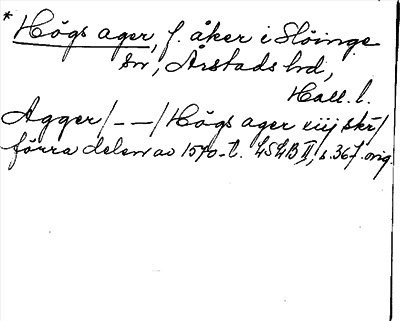 * Högs ager, f. åker i Slöinge
sn, Årstads hd,
Hall. l.
Agger / – – / Högs ager xiij skr /
förra delen av 1570-t. LSHB II, s. 367. orig.